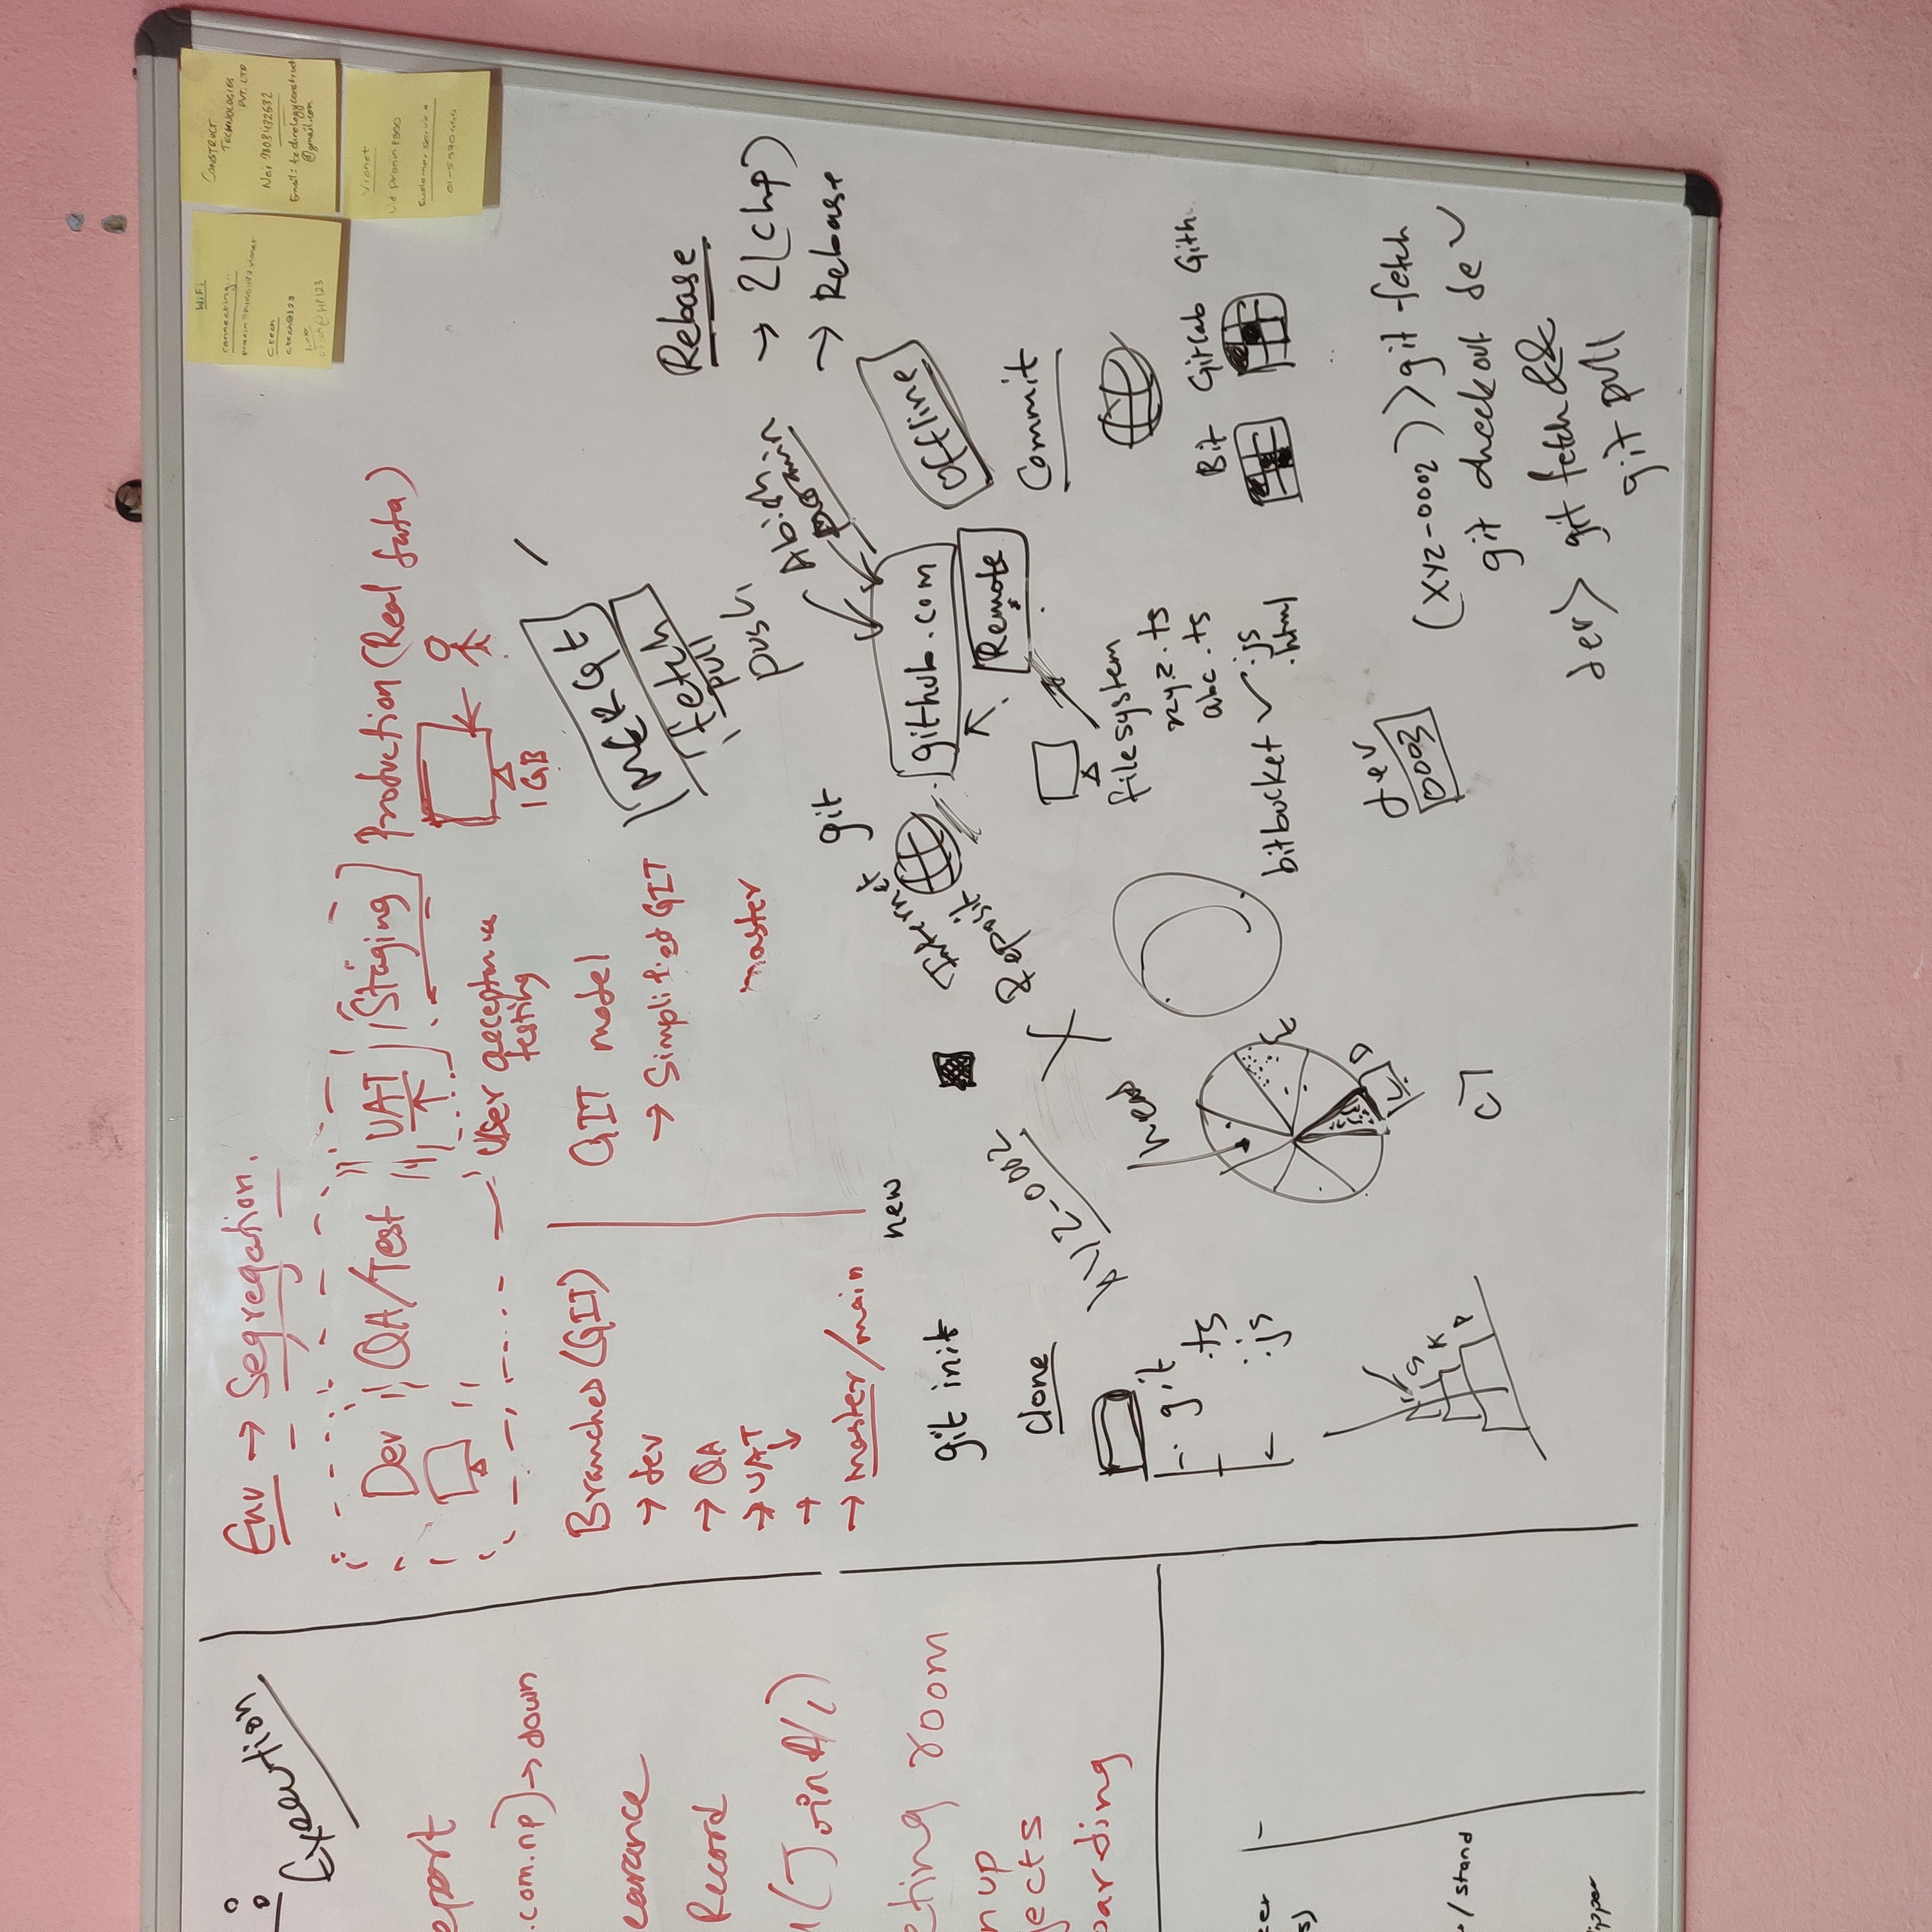 Execution
eport
.com.np) → down
earance
Record
(Joint A/c)
eting room
n up
jects
oarding
/ stand
ipper
Env → Segregation.
Dev QA/Test UAT Staging Production (Real data)
User acceptance
testing
1 GB
Branches (GIT)
→ dev
→ QA
→ UAT
→
→ master/main
GIT model
→ Simplified GIT
master
MERGE
fetch
pull
push
Rebase
→ 2(chp)
→ Rebase
Abish
pramin
git
Internet
Reposit
github.com
Remote
offline
Commit
new
git init
clone
.git
.ts
.js
XYZ-0002
head
E
D
C7
S
K
P
filesystem
xyz.ts
abc.ts
.js
.html
bitbucket ✓
Bit GitLab Gith
dev
0003
(XYZ-0002) > git fetch
git checkout dev
dev > git fetch &&
git pull
WiFi
connecting...
Ctech
ctech@123
CONSTRUCT
TECHNOLOGIES
PVT. LTD
No: 9803432632
Email: technologyconstruct
@gmail.com
Vianet
Customer service